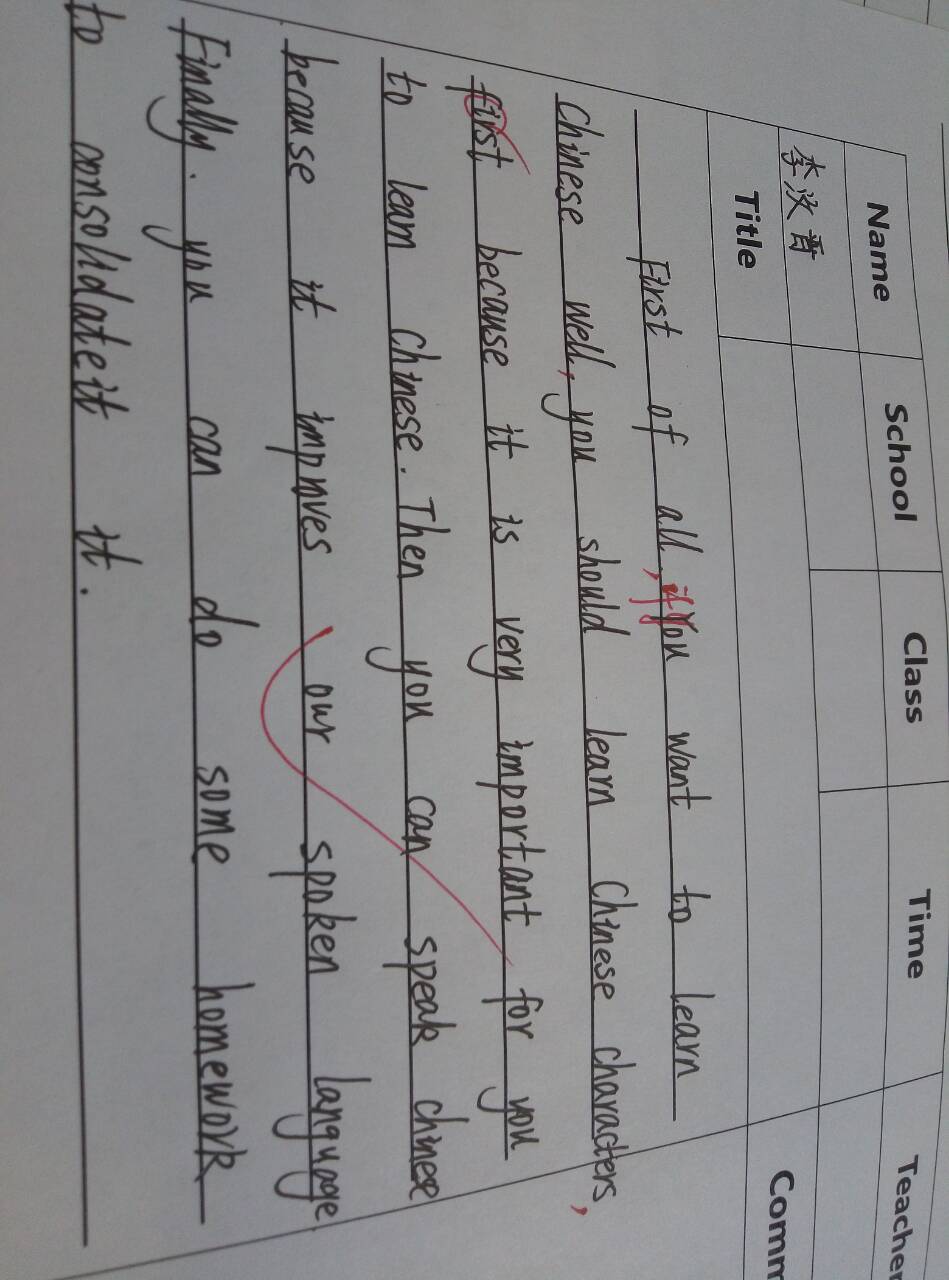 Name School Class Time Teacher
李汶晋
Title Comm
First of all, if you want to learn
Chinese well, you should learn Chinese characters,
first because it is very important for you
to learn Chinese. Then you can speak chinese
because it improves our spoken language
Finally. you can do some homework
to consolidateit it.